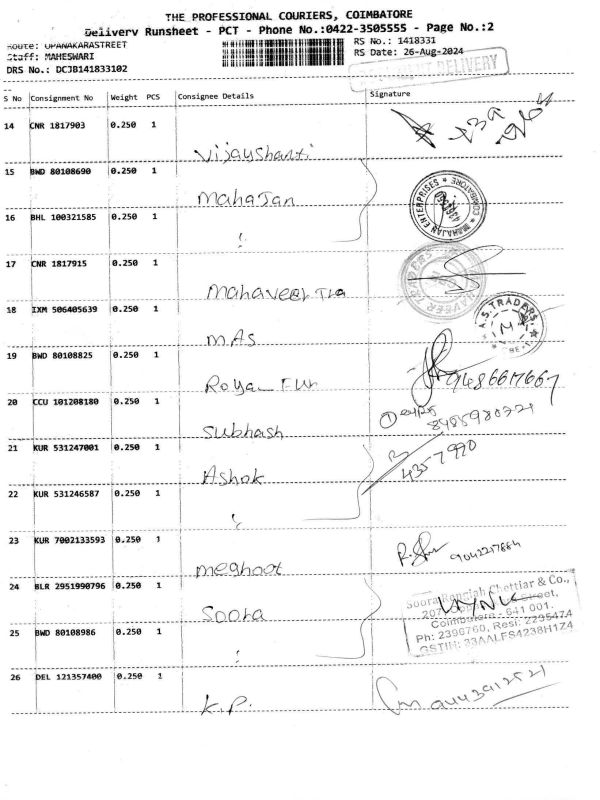 THE PROFESSIONAL COURIERS, COIMBATORE
Delivery Runsheet - PCT - Phone No.:0422-3505555 - Page No.:2
Route: OPANAKARASTREET
Staff: MAHESWARI
DRS No.: DCJB141833102
RS No.: 1418331
RS Date: 26-Aug-2024
DELIVERY
S No Consignment No Weight PCS Consignee Details Signature
14 CNR 1817903 0.250 1
Vijayshanti
15 BWD 80108690 0.250 1
Mahajan
MAHAJAN ENTERPRISES * COIMBATORE
16 BHL 100321585 0.250 1
17 CNR 1817915 0.250 1
Mahaveer Tra
MAHAVEER TRADERS
18 IXM 506405639 0.250 1
MAS
A.S. TRADERS
19 BWD 80108825 0.250 1
Royal Fur
9486617667
20 CCU 101208180 0.250 1
Subhash
21 KUR 531247001 0.250 1
Ashok
4357990
22 KUR 531246587 0.250 1
23 KUR 7002133593 0.250 1
meghoot
24 BLR 2951990796 0.250 1
Soora
Soora Rengiah Chettiar & Co.,
Street,
Coimbatore - 641 001.
Ph: 2396760, Resi: 2235474
GSTIN: 33AALFS4238H1Z4
25 BWD 80108986 0.250 1
26 DEL 121357400 0.250 1
K.P.